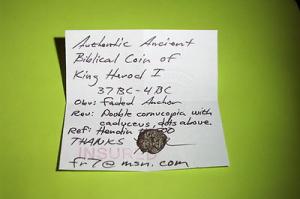 Authentic Ancient
Biblical Coin of
King Herod I
37BC-4BC
Obv: Faded Anchor
Rev: Double cornucopia with
caduceus, dots above.
Ref: Hendin
THANKS
INSURED
fr7@msn.com